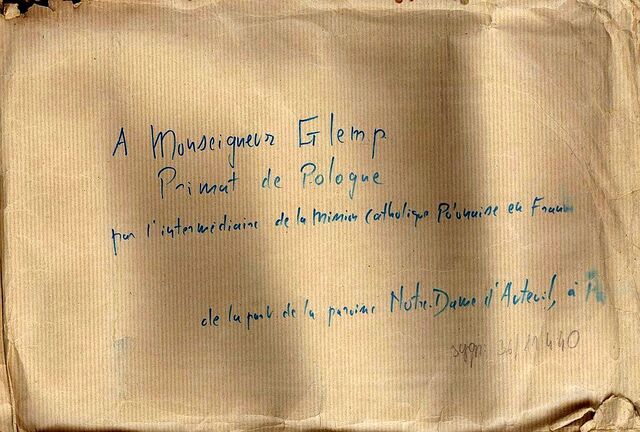 A Monseigneur Glemp
Primat de Pologne
par l'intermédiaire de la Mission Catholique Polonaise en France
de la part de la paroisse Notre-Dame d'Auteuil, à
sygn. 36/11440